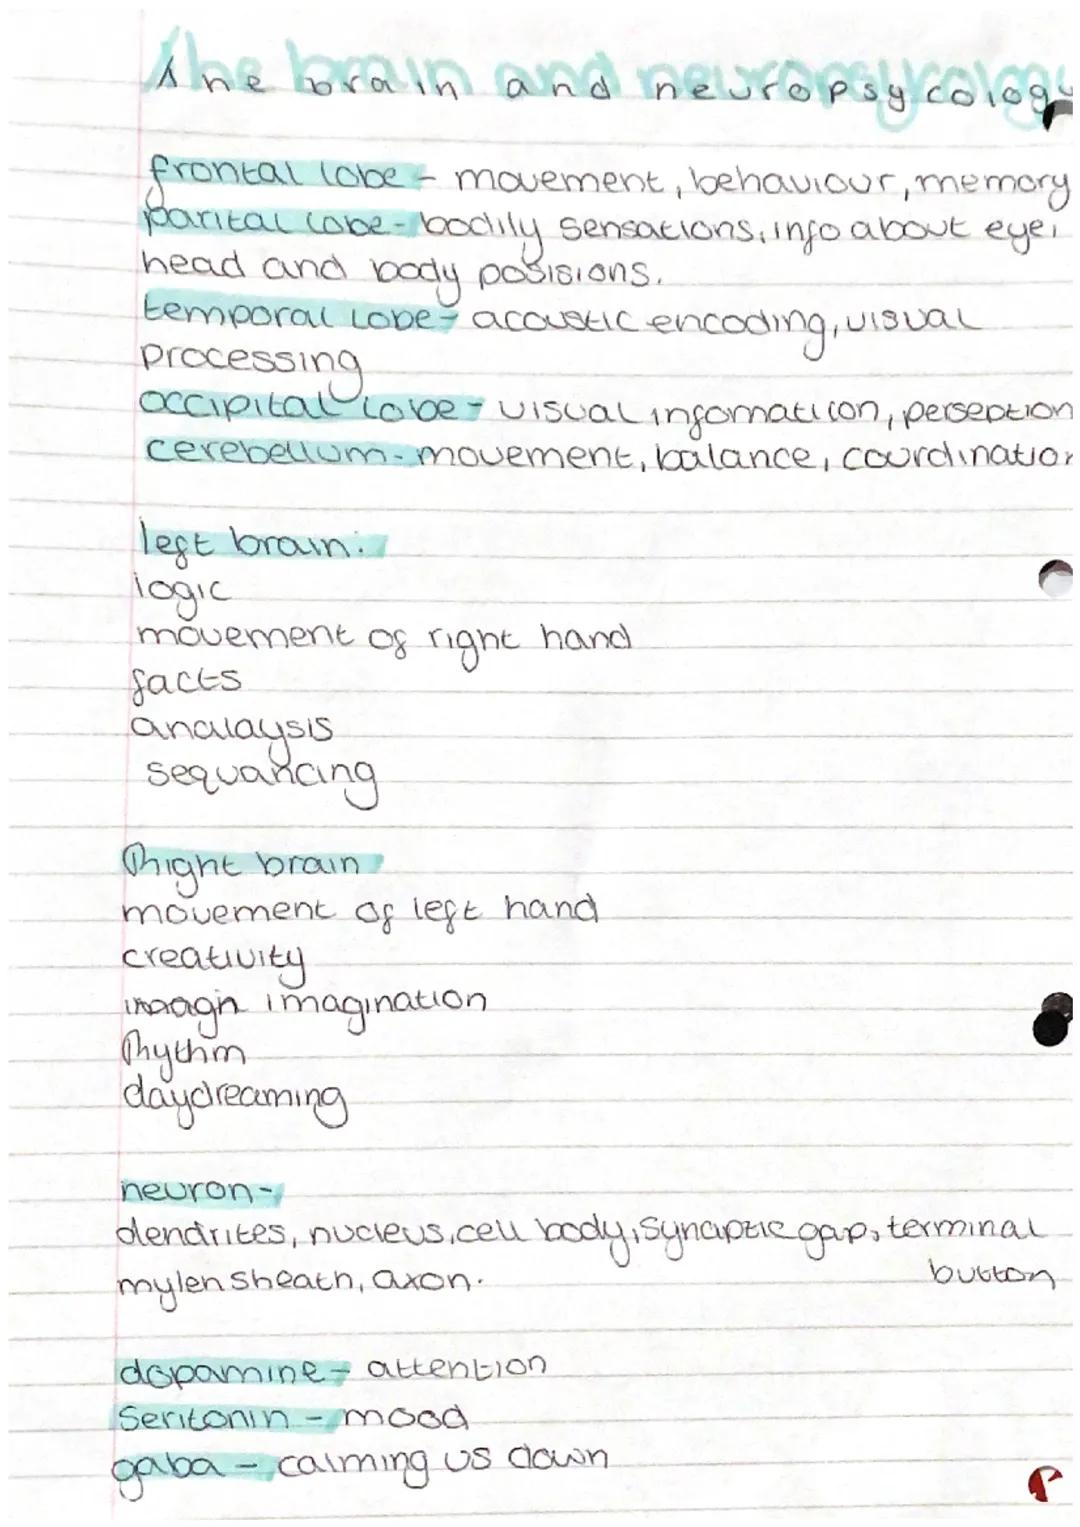 The brain and neuropsycology
frontal lobe - movement, behaviour, memory
parital lobe - bodily sensations, info about eye,
head and body posisions.
temporal lobe - acoustic encoding, visual
processing
occipital lobe - visual infomation, perseption
cerebellum - movement, balance, courdination
left brain:
logic
movement of right hand
facts
analaysis
sequancing
Right brain
movement of left hand
creativity
imagination
Rhythm
daydreaming
neuron -
dendrites, nucleus, cell body, synaptic gap, terminal
mylen sheath, axon. button
dopamine - attention
Seritonin - mood
gaba - calming us down